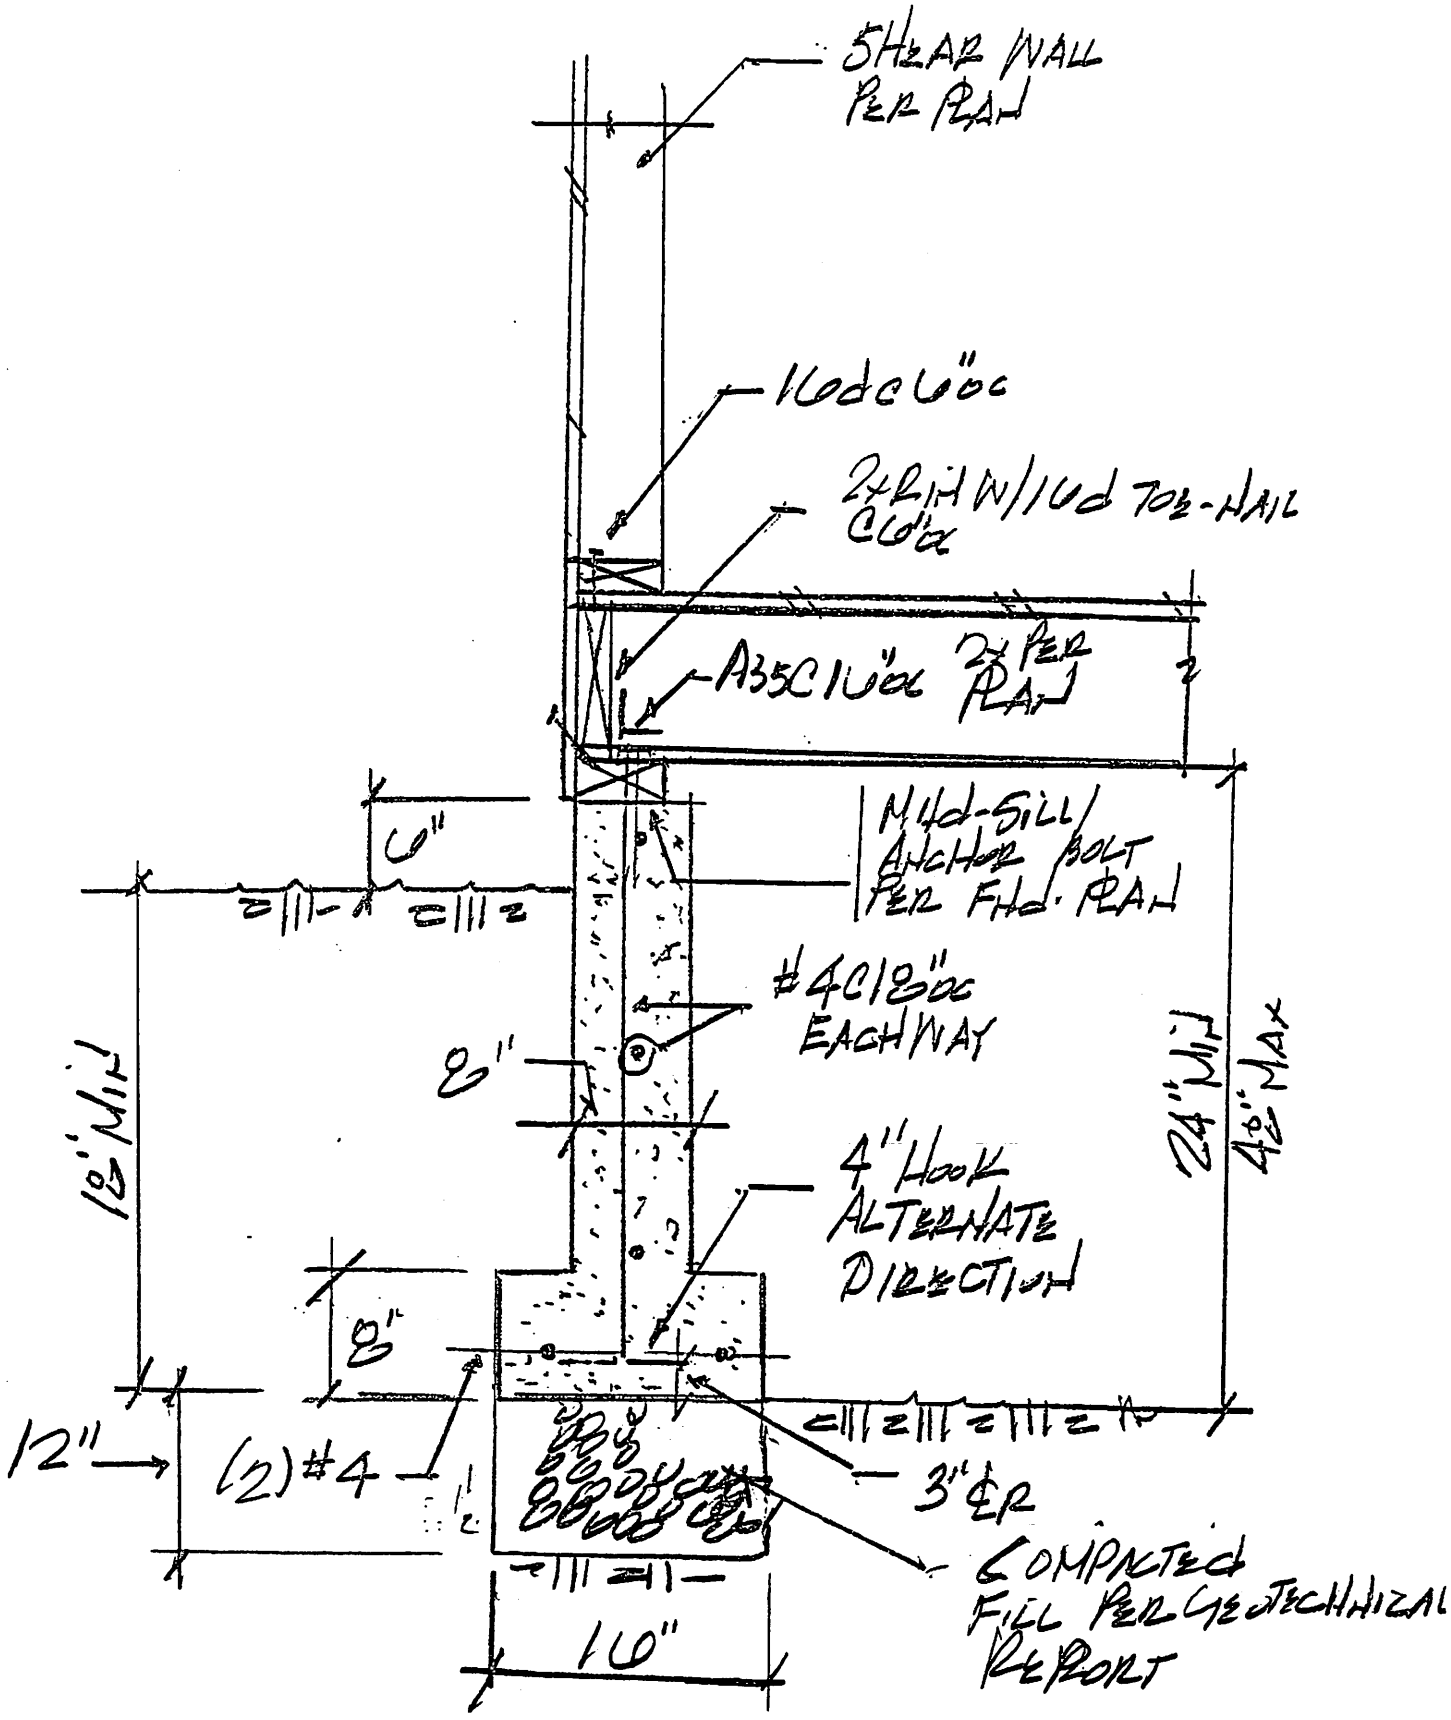 SHEAR WALL
PER PLAN
16d @ 6" oc
2x RIM W/16d TOE-NAIL
@ 6" oc
A35 @ 16" oc
2x PER
PLAN
6"
Mud-SILL/
ANCHOR BOLT
PER FNd. PLAN
#4 @ 18" oc
EACH WAY
8"
18" MIN
24" MIN
48" MAX
4" HOOK
ALTERNATE
DIRECTION
8"
12"
(2) #4
3" CLR
COMPACTED
FILL PER GEOTECHNICAL
REPORT
16"